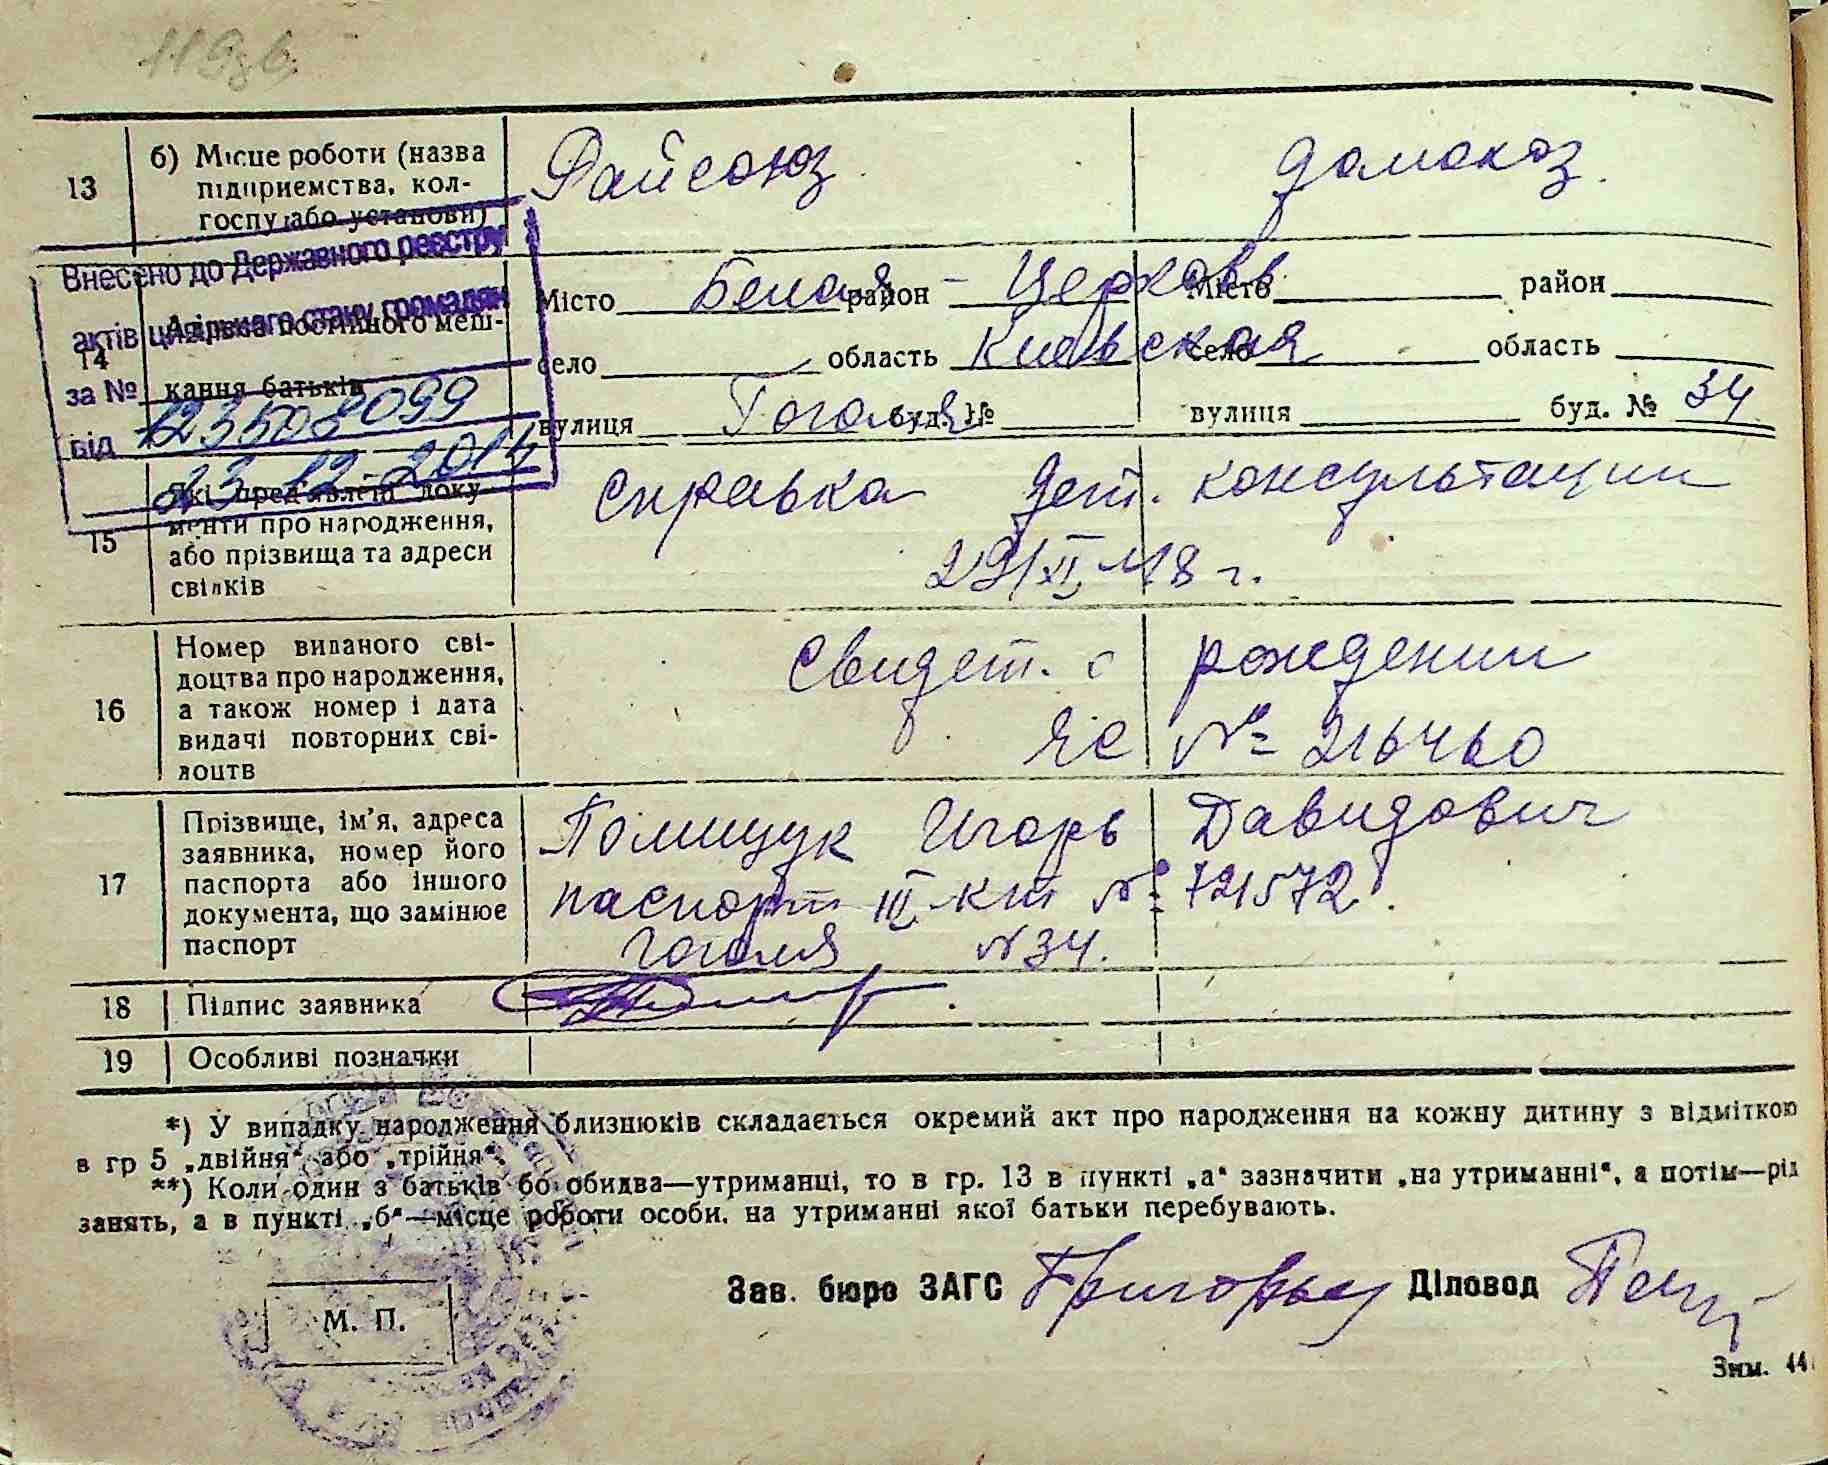 13
б) Місце роботи (назва
підприємства, кол-
госпу або установи)
Райсоюз
домохоз.
Внесено до Державного реєстру
актів цивільного стану громадян
за №
12350 099
від 23.12.2014
14
Адреса постійного меш-
кання батьків
Місто Белая район - Церковь Місто район
село область Киевская село область
вулиця Гоголя буд. № вулиця буд. № 34
15
Які пред'явлені доку-
менти про народження,
або прізвища та адреси
свідків
Справка дет. консультации
29/XI 48 г.
16
Номер виданого сві-
доцтва про народження,
а також номер і дата
видачі повторних сві-
доцтв
Свидет. о рождении
№ 216460
17
Прізвище, ім'я, адреса
заявника, номер його
паспорта або іншого
документа, що замінює
паспорт
Полищук Игорь Давидович
паспорт III № 721572.
Гоголя N 34.
18
Підпис заявника
19
Особливі позначки
*) У випадку народження близнюків складається окремий акт про народження на кожну дитину з відміткою
в гр 5 „двійня“ або „трійня“.
**) Коли один з батьків бо обидва—утриманці, то в гр. 13 в пункті „а“ зазначити „на утриманні“, а потім—рід
занять, а в пункті „б“—місце роботи особи, на утриманні якої батьки перебувають.
Зав. бюро ЗАГС Діловод
М. П.
Зим. 44